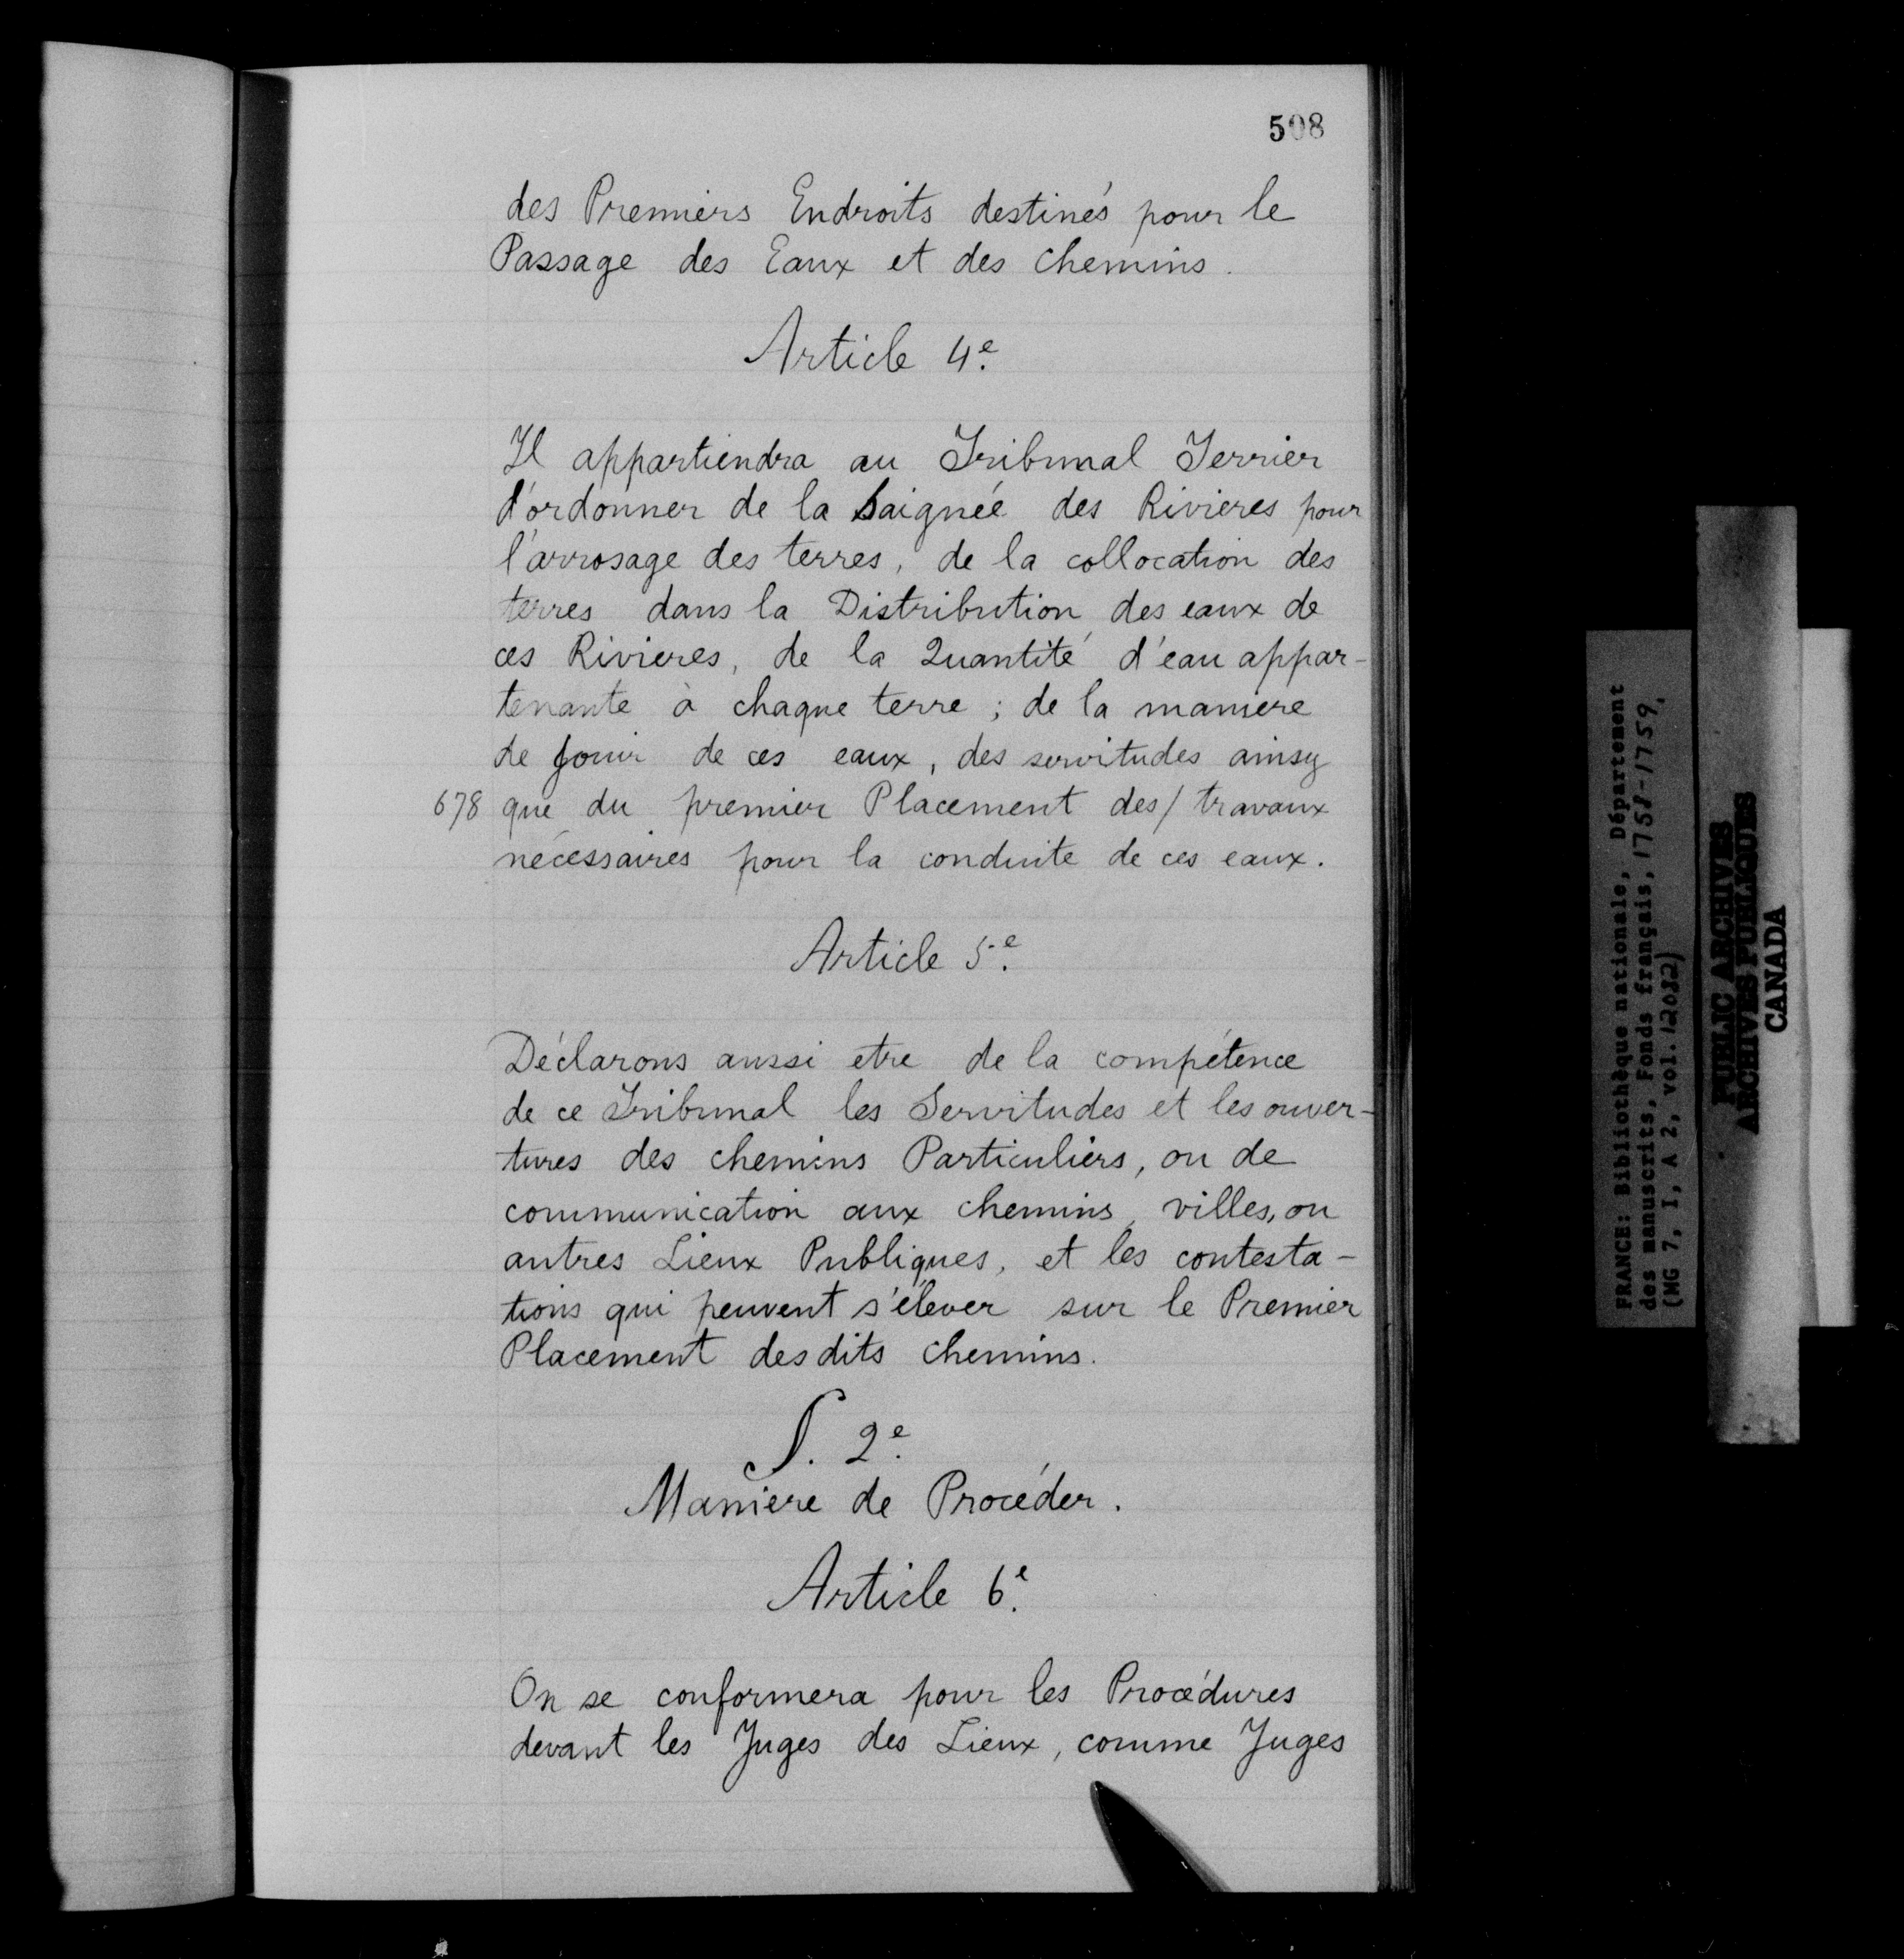 508
des Premiers Endroits destinés pour le
Passage des Eaux et des Chemins.
Article 4e.
Il appartiendra au Tribunal Terrier
d'ordonner de la Saignée des Rivieres pour
l'arrosage des terres, de la collocation des
terres dans la Distribution des eaux de
ces Rivieres, de la Quantité d'eau appar-
tenante à chaque terre ; de la maniere
de jouir de ces eaux, des servitudes ainsy
678 que du premier Placement des/ travaux
nécessaires pour la conduite de ces eaux.
Article 5e.
Déclarons aussi etre de la compétence
de ce Tribunal les Servitudes et les ouver-
tures des chemins Particuliers, ou de
communication aux chemins, villes, ou
autres Lieux Publiques, et les contesta-
tions qui peuvent s'élever sur le Premier
Placement desdits Chemins.
§. 2e.
Maniere de Procéder.
Article 6e.
On se conformera pour les Procédures
devant les Juges des Lieux, comme Juges
FRANCE: Bibliothèque nationale, Département
des manuscrits, Fonds français, 1758-1759,
(MG 7, I, A 2, vol. 12032)
PUBLIC ARCHIVES
ARCHIVES PUBLIQUES
CANADA